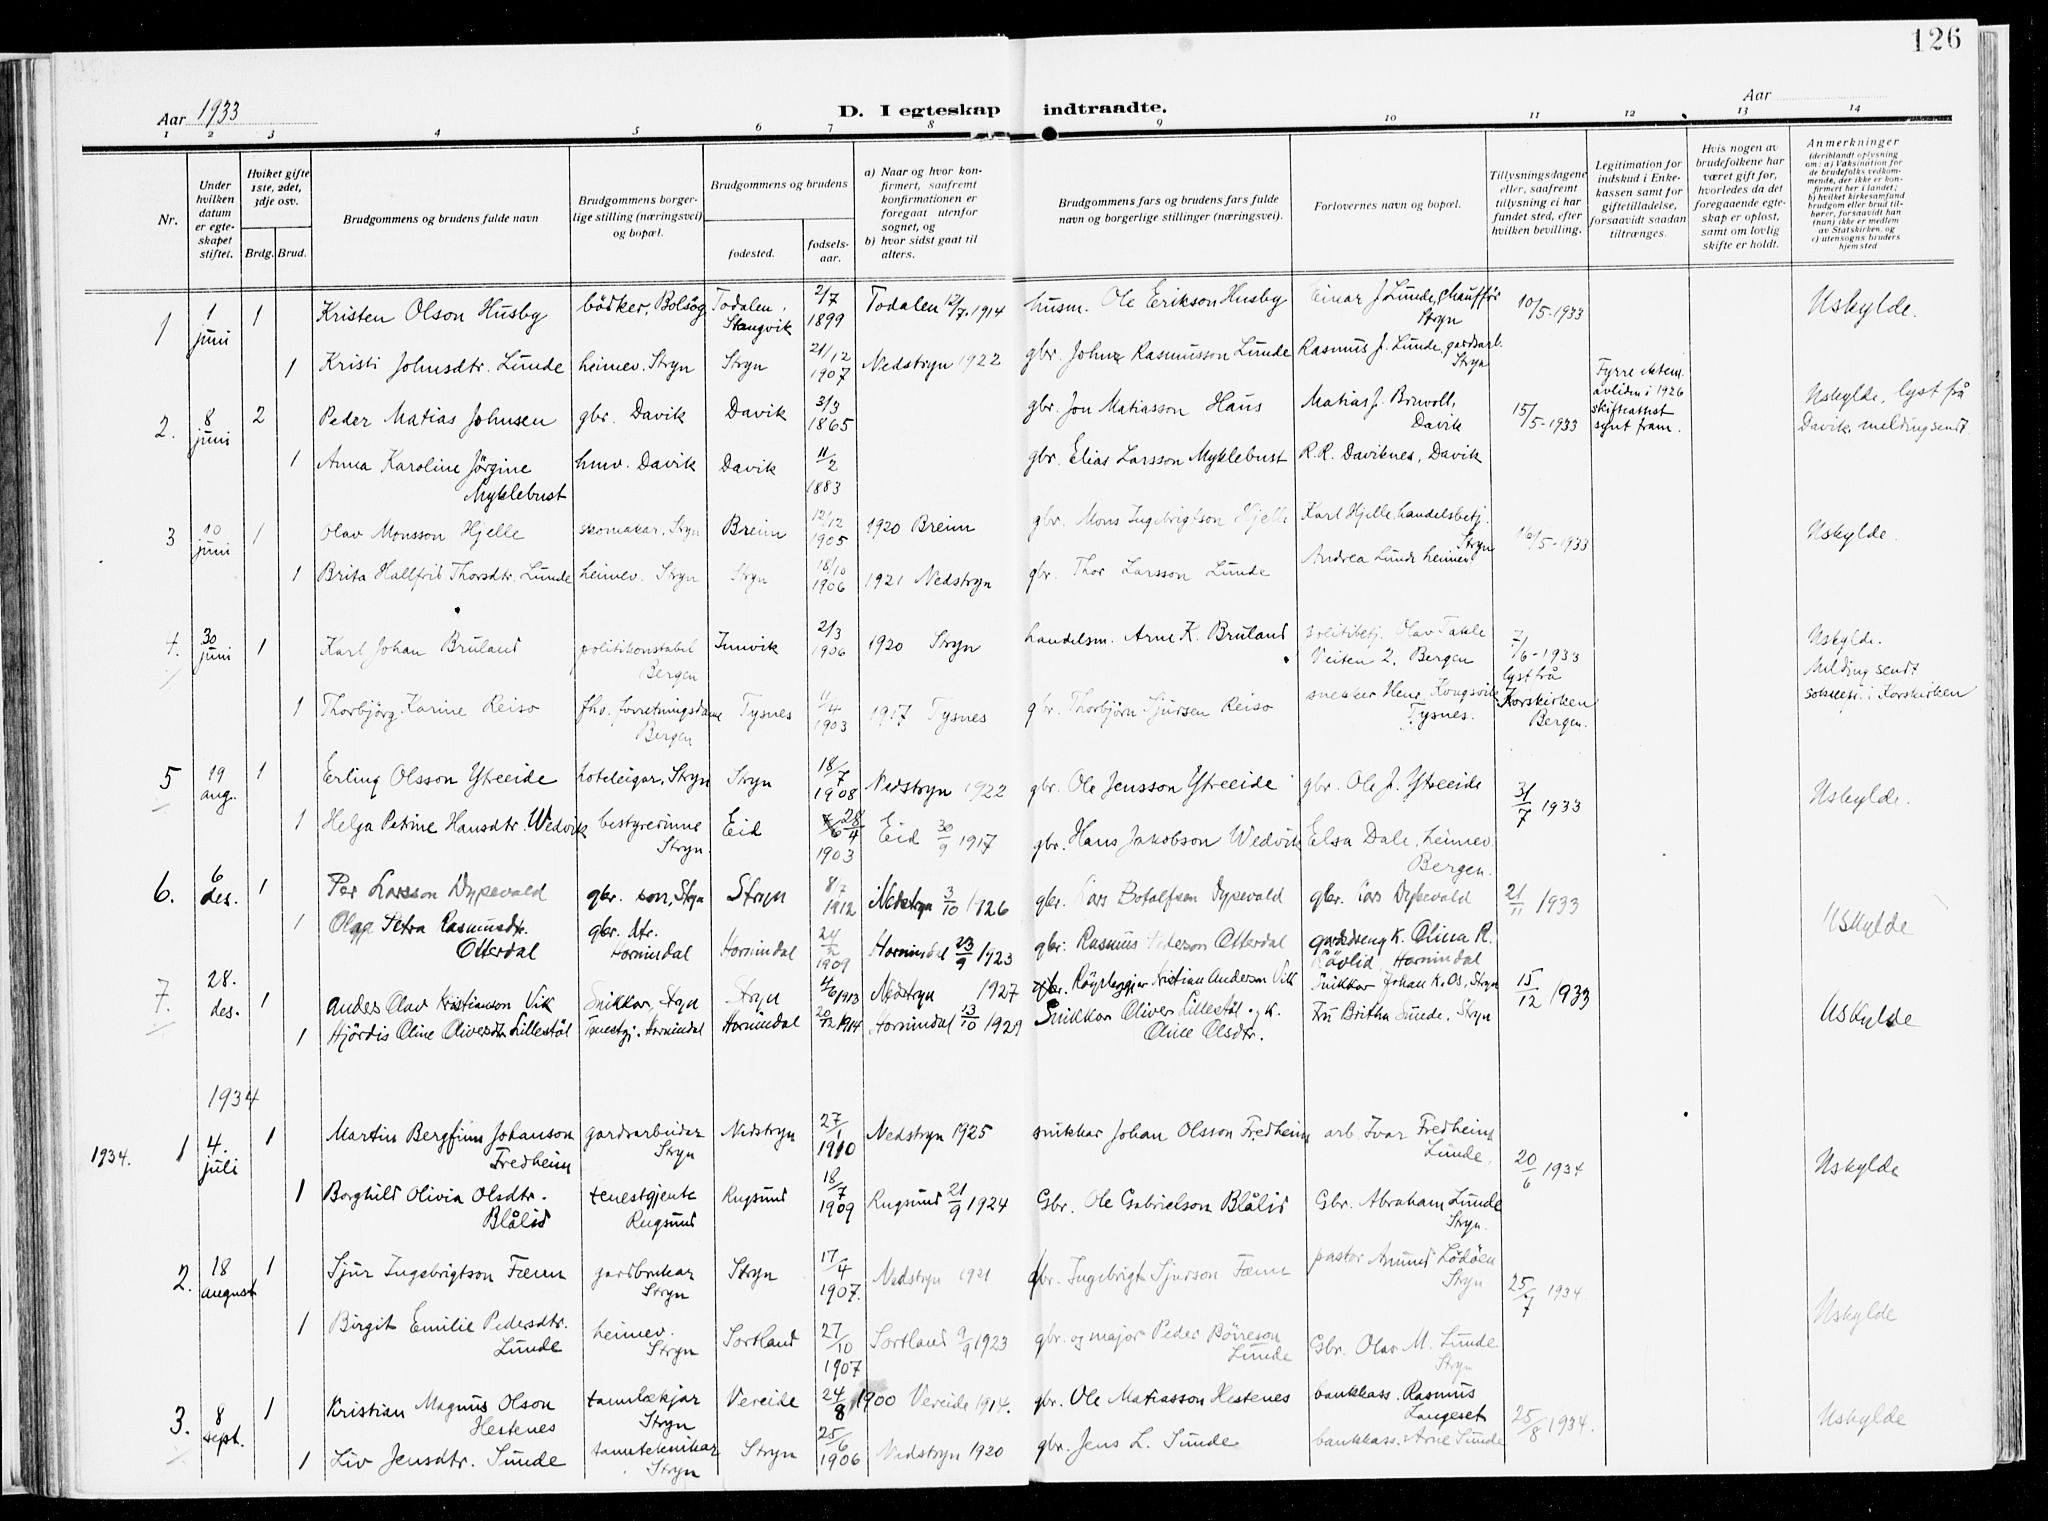 126
Aar 1933
D. I egteskap indtraadte.
Aar
1 2 3 4 5 6 7 8 9 10 11 12 13 14
Nr.
Under hvilken datum er egteskapet stiftet.
Hviket gifte 1ste, 2det, 3dje osv.
Brdg. Brud.
Brudgommens og brudens fulde navn
Brudgommens borgerlige stilling (næringsvei) og bopæl.
Brudgommens og brudens
fødested.
fødselsaar.
a) Naar og hvor konfirmert, saafremt konfirmationen er foregaat utenfor sognet, og
b) hvor sidst gaat til alters.
Brudgommens fars og brudens fars fulde navn og borgerlige stillinger (næringsvei).
Forlovernes navn og bopæl.
Tillysningsdagene eller, saafremt tillysning ei har fundet sted, efter hvilken bevilling.
Legitimation for indskud i Enkekassen samt for giftetilladelse, forsaavidt saadan tiltrænges.
Hvis nogen av brudefolkene har været gift før, hvorledes da det foregaaende egteskap er opløst, samt om lovlig skifte er holdt.
Anmerkninger
(deriblandt oplysning om: a) Vaksination for de brudefolks vedkommende, der ikke er konfirmert her i landet; b) hvilket kirkesamfund brudgom eller brud tilhører, forsaavidt han (hun) ikke er medlem av Statskirken, og c) utensogns bruders hjemsted
1 1 juni 1 Kristen Olson Husby bödker, Bolsög Todalen, Stangvik 2/7 1899 Todalen 12/7. 1914 husm. Ole Erikson Husby Einar J. Lunde, chauffør Stryn 10/5-1933 Uskylde.
1 Kristi Johnsdtr. Lunde heimev. Stryn Stryn 21/12 1907 Nedstryn 1922 gbr. John Rasmusson Lunde Rasmus J. Lunde, gardsarb. Stryn
2. 8 juni 2 Peder Matias Johnsen gbr. Davik Davik 3/3 1865 gbr. Jon Matiasson Haus Matias J. Davik 15/5-1933 Fyrre ektem. avliden i 1926 skifteattest synt fram. Uskylde, lyst på Davik, melding sendt
1 Anna Karoline Jörgine Myklebust hmv. Davik Davik 11/2 1883 gbr. Elias Larsson Myklebust R.R. Daviknes, Davik
3 10 juni 1 Olav Monsson Hjelle skomakar, Stryn Breim 12/12 1905 1920 Breim gbr. Mons Ingebrigtson Hjelle Karl Hjelle, handelsbetj. Stryn 16/5-1933 Uskylde.
1 Brita Hallfrid Thorsdtr. Lunde heimev. Stryn Stryn 18/10 1906 1921 Nedstryn gbr. Thor Larsson Lunde Andrea Lunde heimev.
4. 30 juni 1 Karl Johan Bruland politikonstabel Bergen Innvik 2/3 1906 1920 Stryn handelsm. Arne K. Bruland politibetj. Olav Takle Veiten 2, Bergen 7/6-1933 lyst frå Korskirken Bergen. Uskylde. Melding sendt i Korskirken
1 Thorbjörg Karine Reiso fhv. forretningsdame Bergen Tysnes 11/4 1903 1917 Tysnes gbr. Thorbjörn Sjursen Reiso snekker Henr. Kongsvik Tysnes.
5 19 aug. 1 Erling Olsson Ytreeide hoteleigar, Stryn Stryn 18/7 1908 Nedstryn 1922 gbr. Ole Jensson Ytreeide gbr. Ole J. Ytreeide 31/7 1933 Uskylde.
1 Helga Petrine Hansdtr. Wedvik bestyrerinne Stryn. Eid 28/4 1903 Eid 30/9 1917 gbr. Hans Jakobson Wedvik Elsa Dale, heimev. Bergen.
6. 6 des. 1 Per Larsson Dypevald gbr. son, Stryn Stryn 8/7 1912 Nedstryn 3/10 1926 gbr. Lars Botolfsen Dypevald gbr. Lars Dypevald 21/11 1933 Uskylde
1 Olga Petra Rasmusdtr. Otterdal gbr. dtr. Hornindal Hornindal 24/2 1909 Hornindal 23/9 1923 gbr. Rasmus Pederson Otterdal K. Olina R. Lövlid, Hornindal
7. 28. des. 1 Anders Olav Kristianson Vik Snikkar, Stryn Stryn 4/6 1913 Nedstryn 1927 Kristian Anderson Vik Snikkar Johan K. Os, Stryn 15/12 1933 Uskylde
1 Hjördis Oline Oliversdtr Lillestöl Hornindal Hornindal 20/12 1914 Hornindal 13/10 1929 Snikkar Oliver Lillestöl og k. Oline Olsdtr. Fru Britha Sunde, Stryn
1934
1934. 1 4. juli 1 Martin Bergfinn Johanson Fredheim gardsarbeidar Stryn Nedstryn 27/1 1910 Nedstryn 1925 snikkar Johan Olsson Fredheim arb. Ivar Fredheim Lunde. 20/6 1934 Uskylde
1 Borghild Olivia Olsdtr. Blålid tenestgjente Rugsund Rugsund 18/7 1909 Rugsund 21/9 1924 Gbr. Ole Gabrielson Blålid Gbr. Abraham Lunde Stryn.
2. 18 august 1 Sjur Ingebrigtson Fænn gardbrukar Stryn Stryn 17/4 1907. Nedstryn 1921 gbr. Ingebrigt Sjurson Fænn pastor Anund Lödöen Stryn 25/7 1934. Uskylde
1 Birgit Emilie Pedersdtr. Lunde heimev. Stryn Sortland 27/10 1907 Sortland 9/9 1923 gbr. og major Peder Börreson Lunde Gbr. Olav M. Lunde Stryn
3. 8 sept. 1 Kristian Magnus Olson Hestenes tannlækjar Stryn Vereide 24/8 1900 Vereide 1914. gbr. Ole Matiasson Hestenes bankkass. Rasmus Langeset 25/8 1934. Uskylde
1 Liv Jensdtr. Sunde tannteknikar Stryn Stryn 25/6 1906 Nedstryn 1920 gbr. Jens L. Sunde bankkass. Arne Sunde